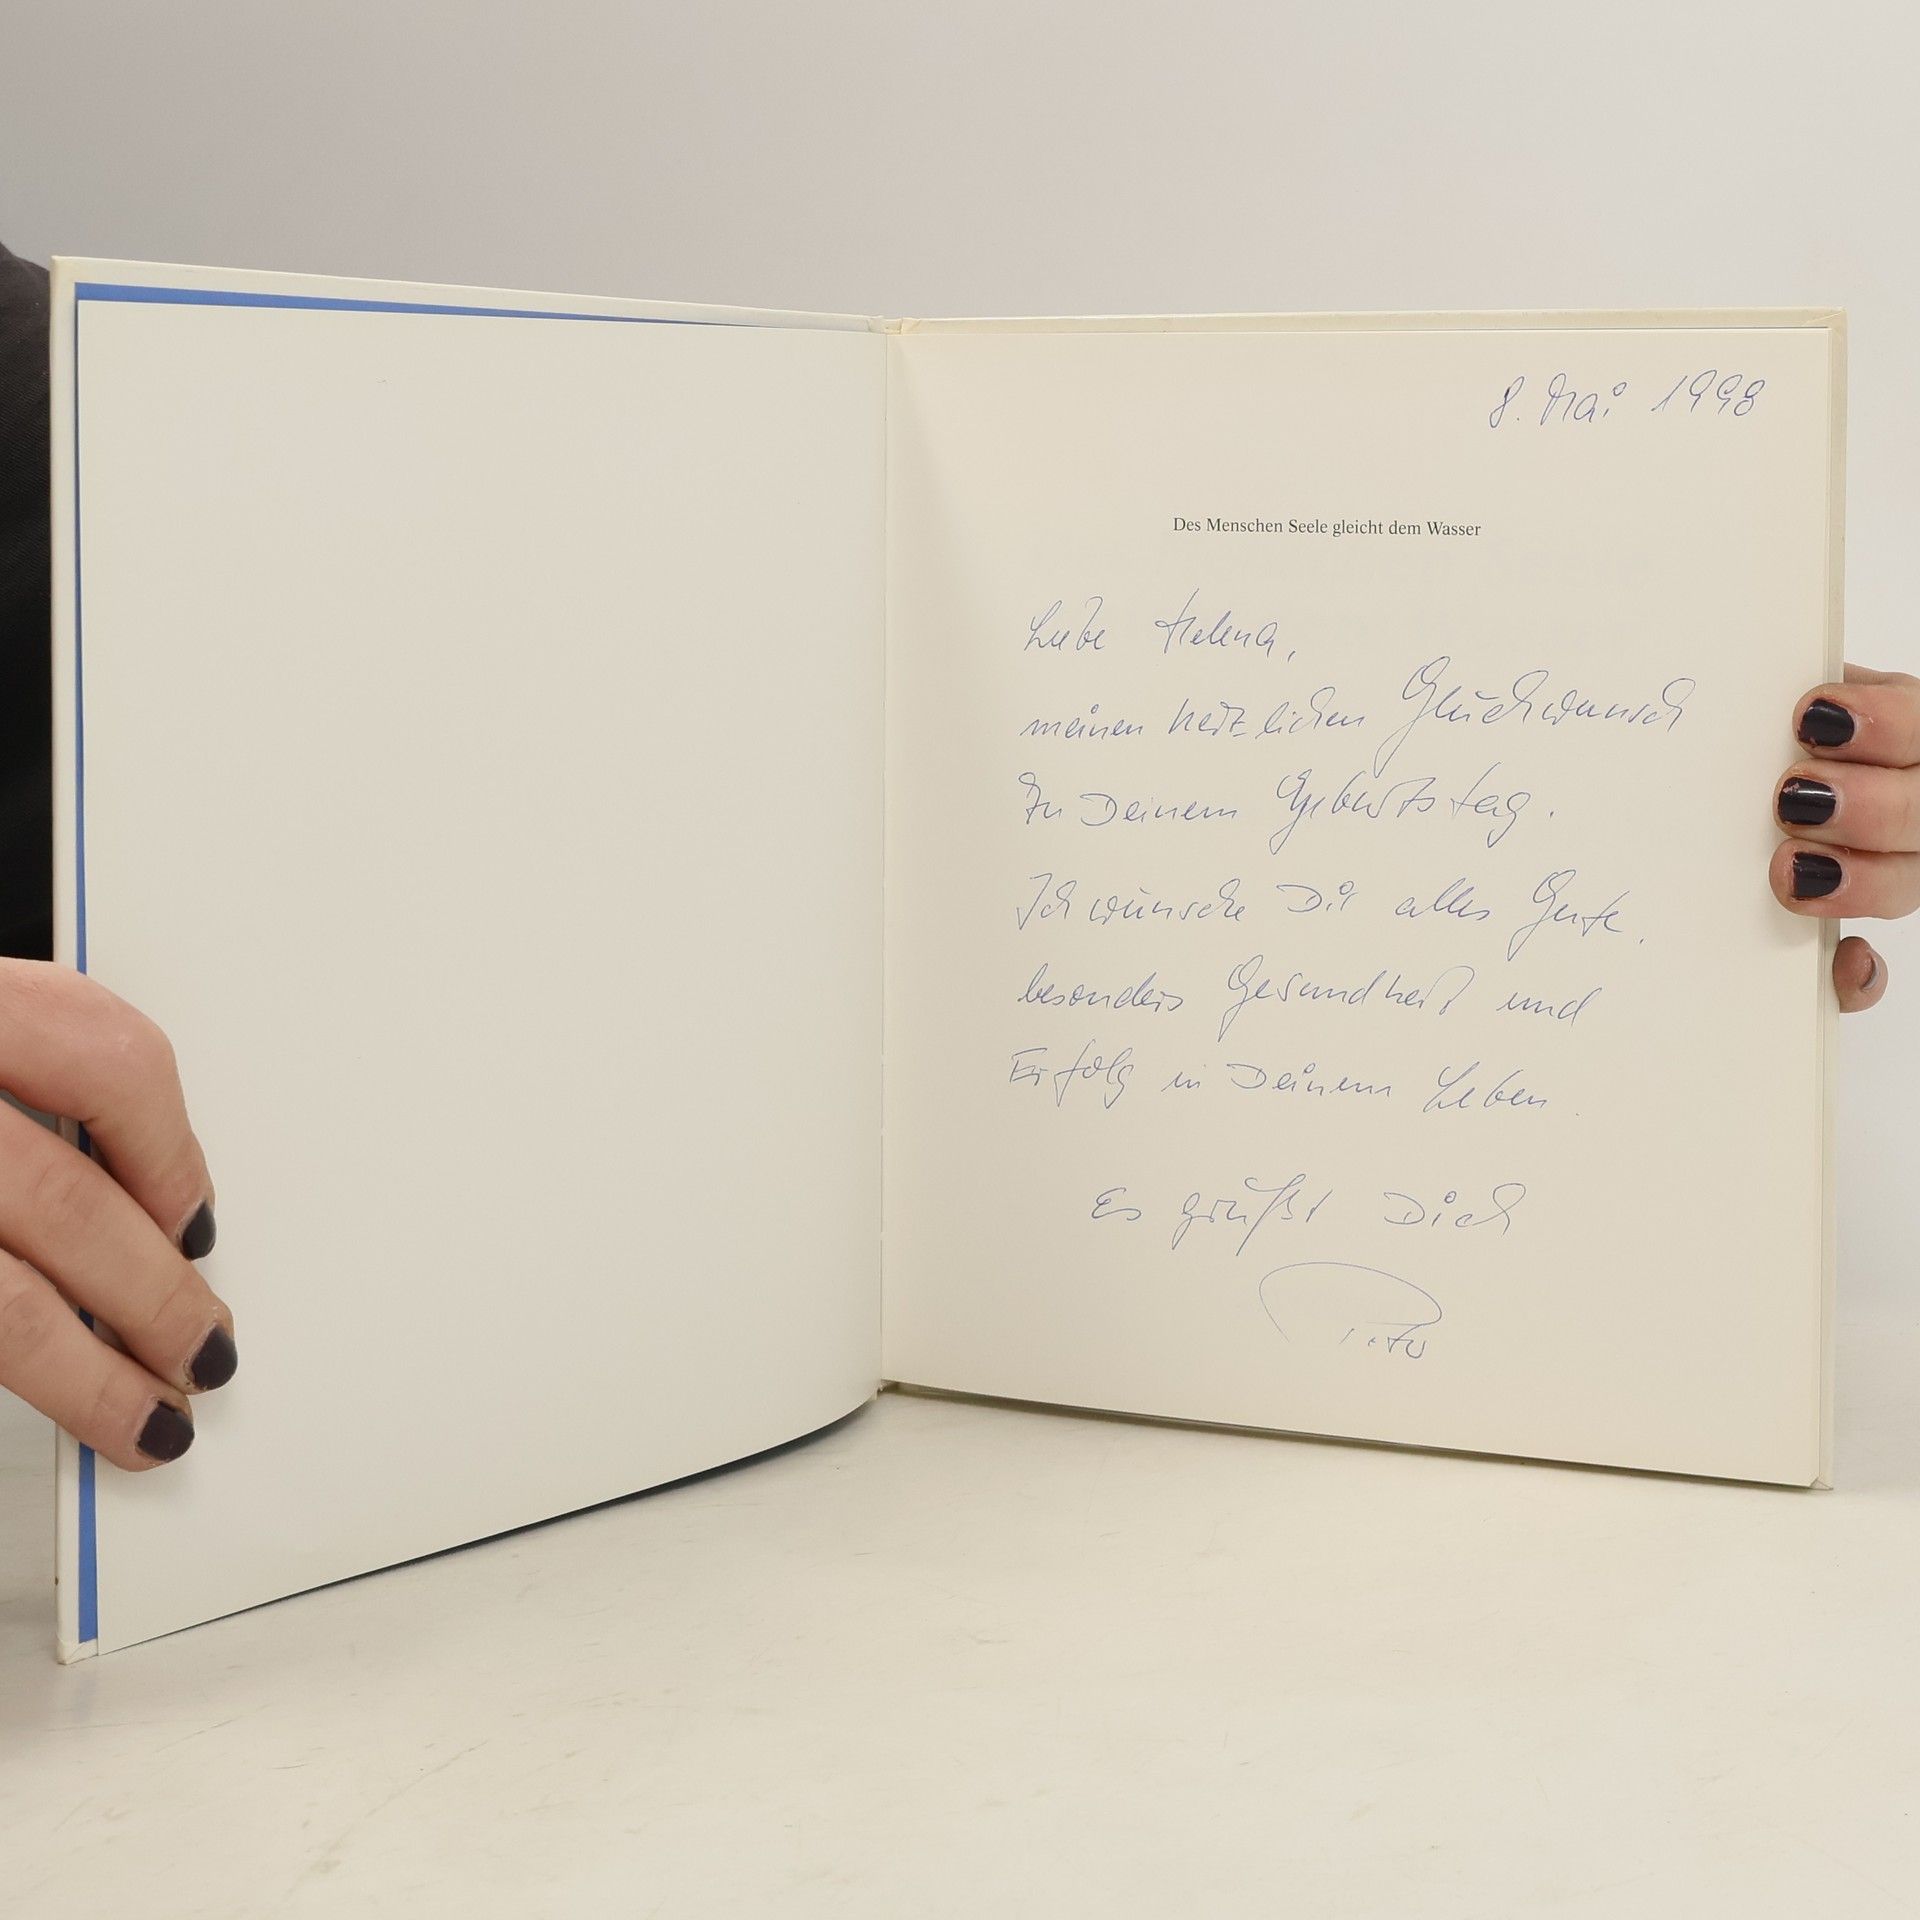 8. Mai 1998
Des Menschen Seele gleicht dem Wasser
Liebe Helena,
meinen herzlichen Glückwunsch
zu Deinem Geburtstag.
Ich wünsche Dir alles Gute,
besonders Gesundheit und
Erfolg in Deinem Leben.
Es grüßt Dich
Peter